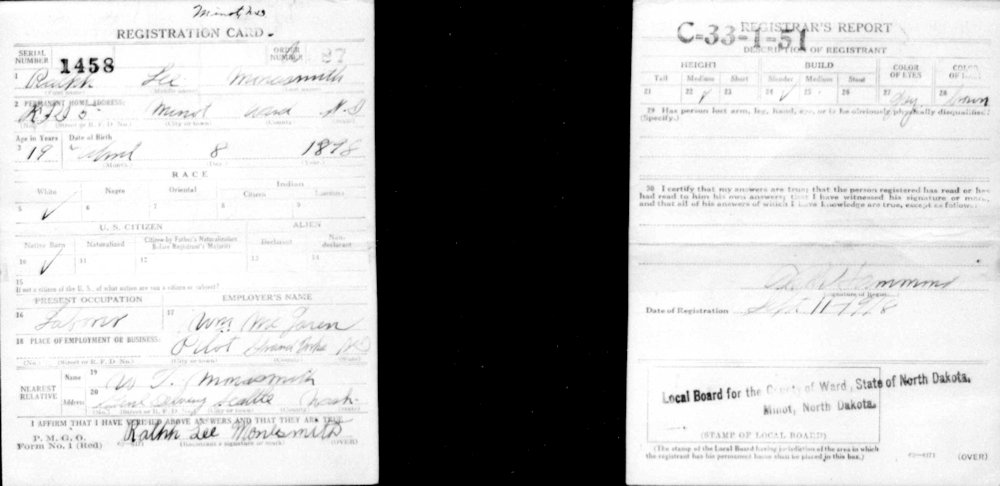 Minot, N.D.
REGISTRATION CARD
SERIAL NUMBER 1458 ORDER NUMBER 87
1 Ralph Lee Monesmith
(First name) (Middle name) (Last name)
2 PERMANENT HOME ADDRESS:
RFD 5 Minot Ward N.D.
(No.) (Street or R. F. D. No.) (City or town) (County) (State)
Age in Years Date of Birth
3 19 4 April 8 1898
(Month.) (Day.) (Year.)
RACE
White Negro Oriental Indian
Citizen Noncitizen
5 ✓ 6 7 8 9
U. S. CITIZEN ALIEN
Native Born Naturalized Citizen by Father's Naturalization Before Registrant's Majority Declarant Non-declarant
10 ✓ 11 12 13 14
15
If not a citizen of the U. S., of what nation are you a citizen or subject?
PRESENT OCCUPATION EMPLOYER'S NAME
16 Laborer 17 Wm
18 PLACE OF EMPLOYMENT OR BUSINESS:
Pilot N.D.
(No.) (Street or R. F. D. No.) (City or town) (County) (State)
NEAREST RELATIVE
Name 19 W. T. Monesmith
Address 20 Seattle Wash.
(No.) (Street or R. F. D. No.) (City or town) (County) (State)
I AFFIRM THAT I HAVE VERIFIED ABOVE ANSWERS AND THAT THEY ARE TRUE
P. M. G. O.
Form No. 1 (Red) Ralph Lee Monesmith
(Registrant's signature or mark) (OVER)
C-33-1-51
REGISTRAR'S REPORT
DESCRIPTION OF REGISTRANT
HEIGHT BUILD COLOR OF EYES COLOR OF HAIR
Tall Medium Short Slender Medium Stout
21 22 ✓ 23 24 ✓ 25 26 27 Grey 28 brown
29 Has person lost arm, leg, hand, eye, or is he obviously physically disqualified?
(Specify.)
30 I certify that my answers are true; that the person registered has read or has
had read to him his own answers; that I have witnessed his signature or mark,
and that all of his answers of which I have knowledge are true, except as follows:
Hammond
(Signature of Registrar)
Date of Registration Sept. 11-1918
Local Board for the County of Ward, State of North Dakota.
Minot, North Dakota.
(STAMP OF LOCAL BOARD)
(The stamp of the Local Board having jurisdiction of the area in which
the registrant has his permanent home shall be placed in this box.) (OVER)